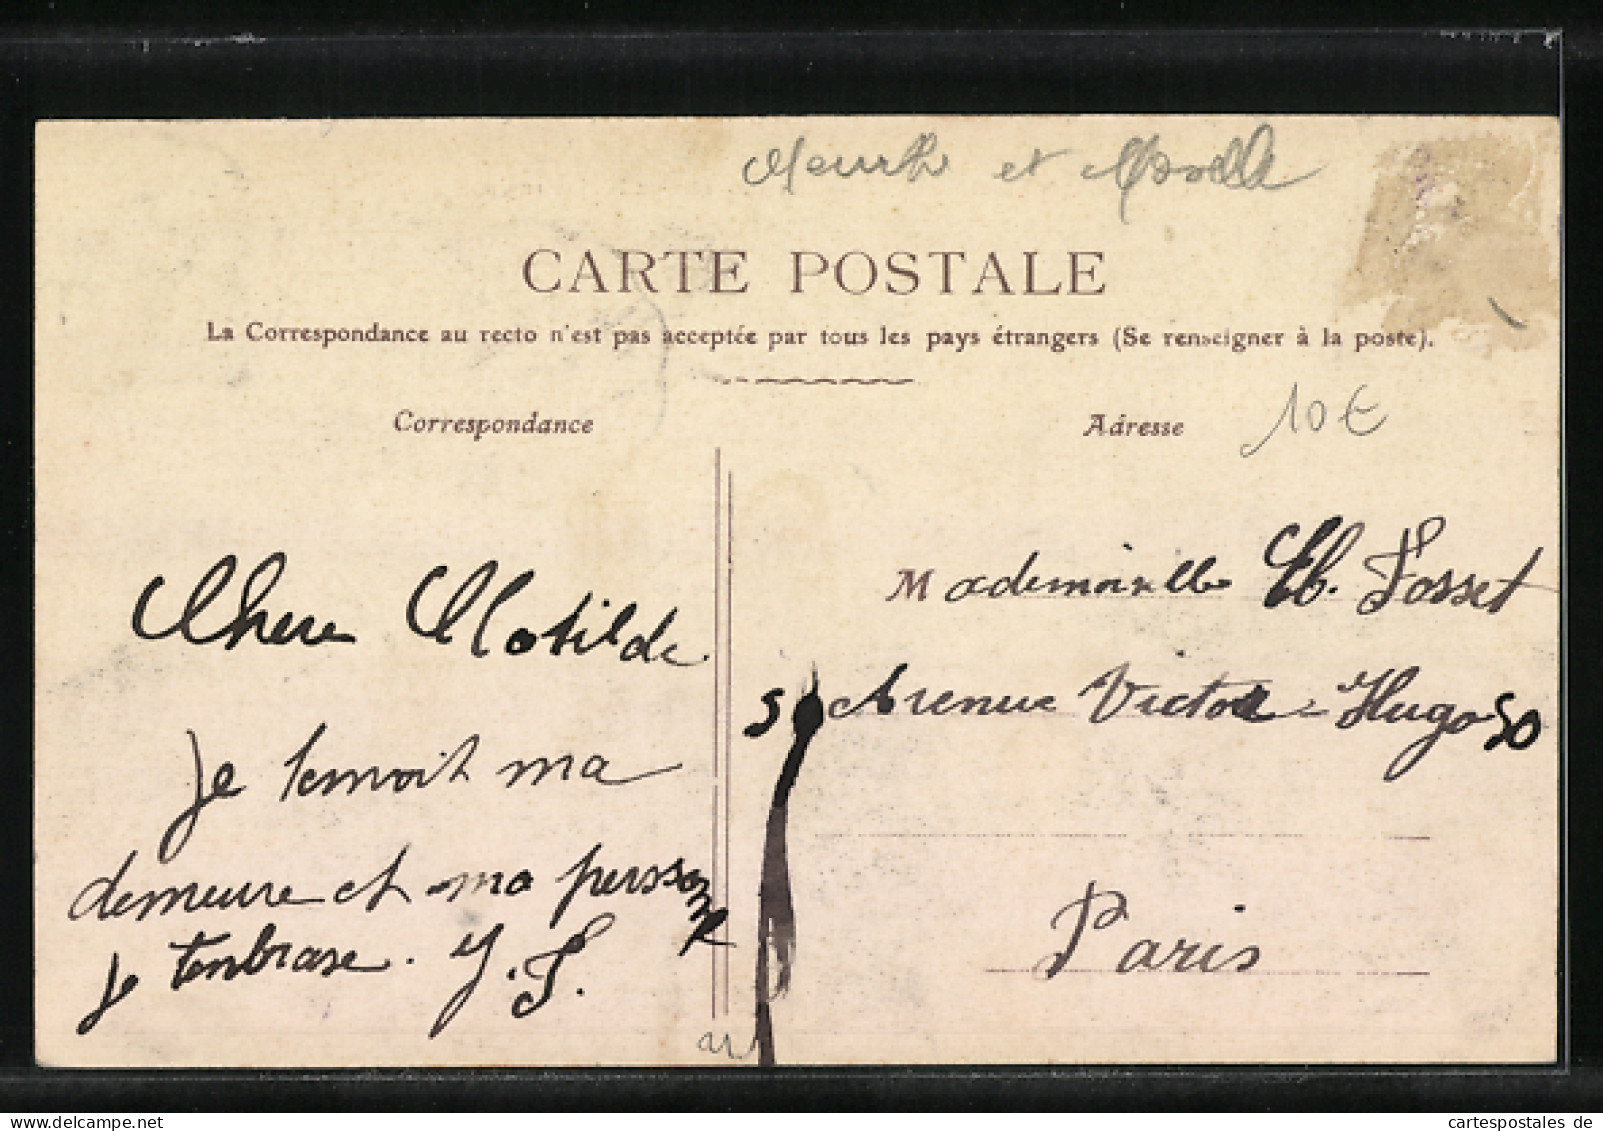 Meurthe et Moselle
CARTE POSTALE
La Correspondance au recto n'est pas acceptée par tous les pays étrangers (Se renseigner à la poste).
Correspondance
Adresse
10€
Chere Matilde
Je tenvoit ma
demeure et ma perssonne
Je tenbrase. J. F.
Mademoiselle M. Fosset
50 Avenue Victor-Hugo 50
Paris
cartespostales de
www.delcampe.net